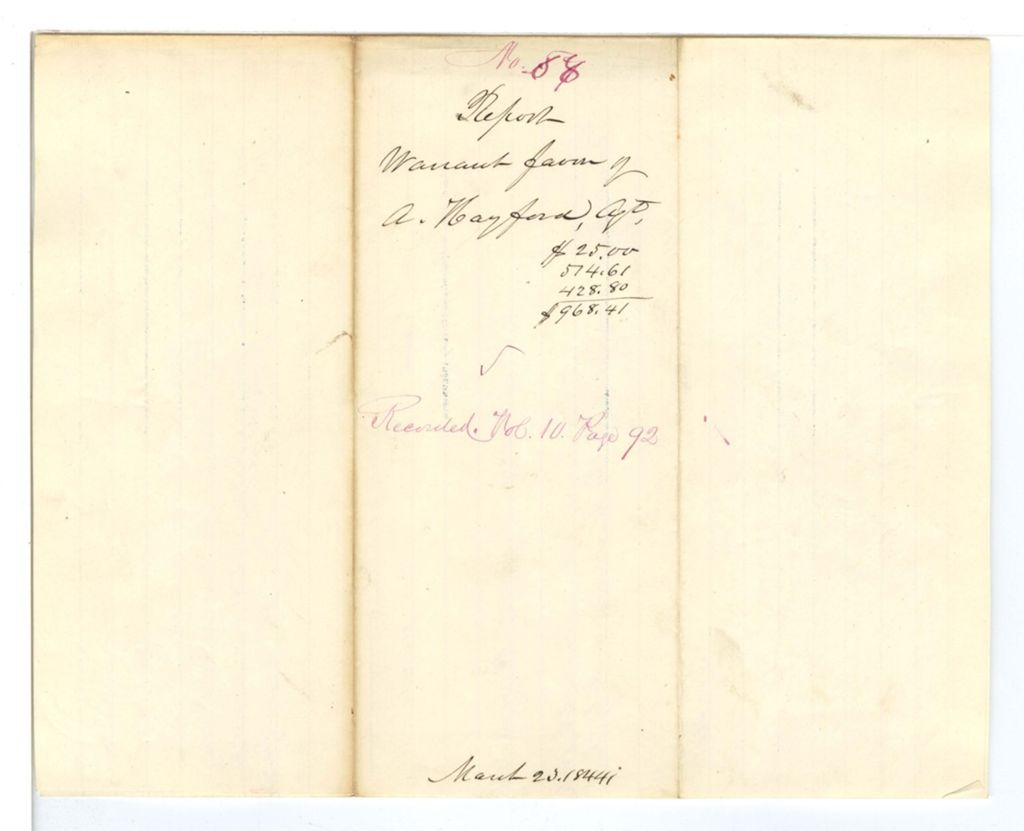 No. 84
Report
Warrant favor of
A. Hayford, Agt,
$25.00
514.61
428.80
$968.41
Recorded. Vol. 10. Page 92
March 23. 1844